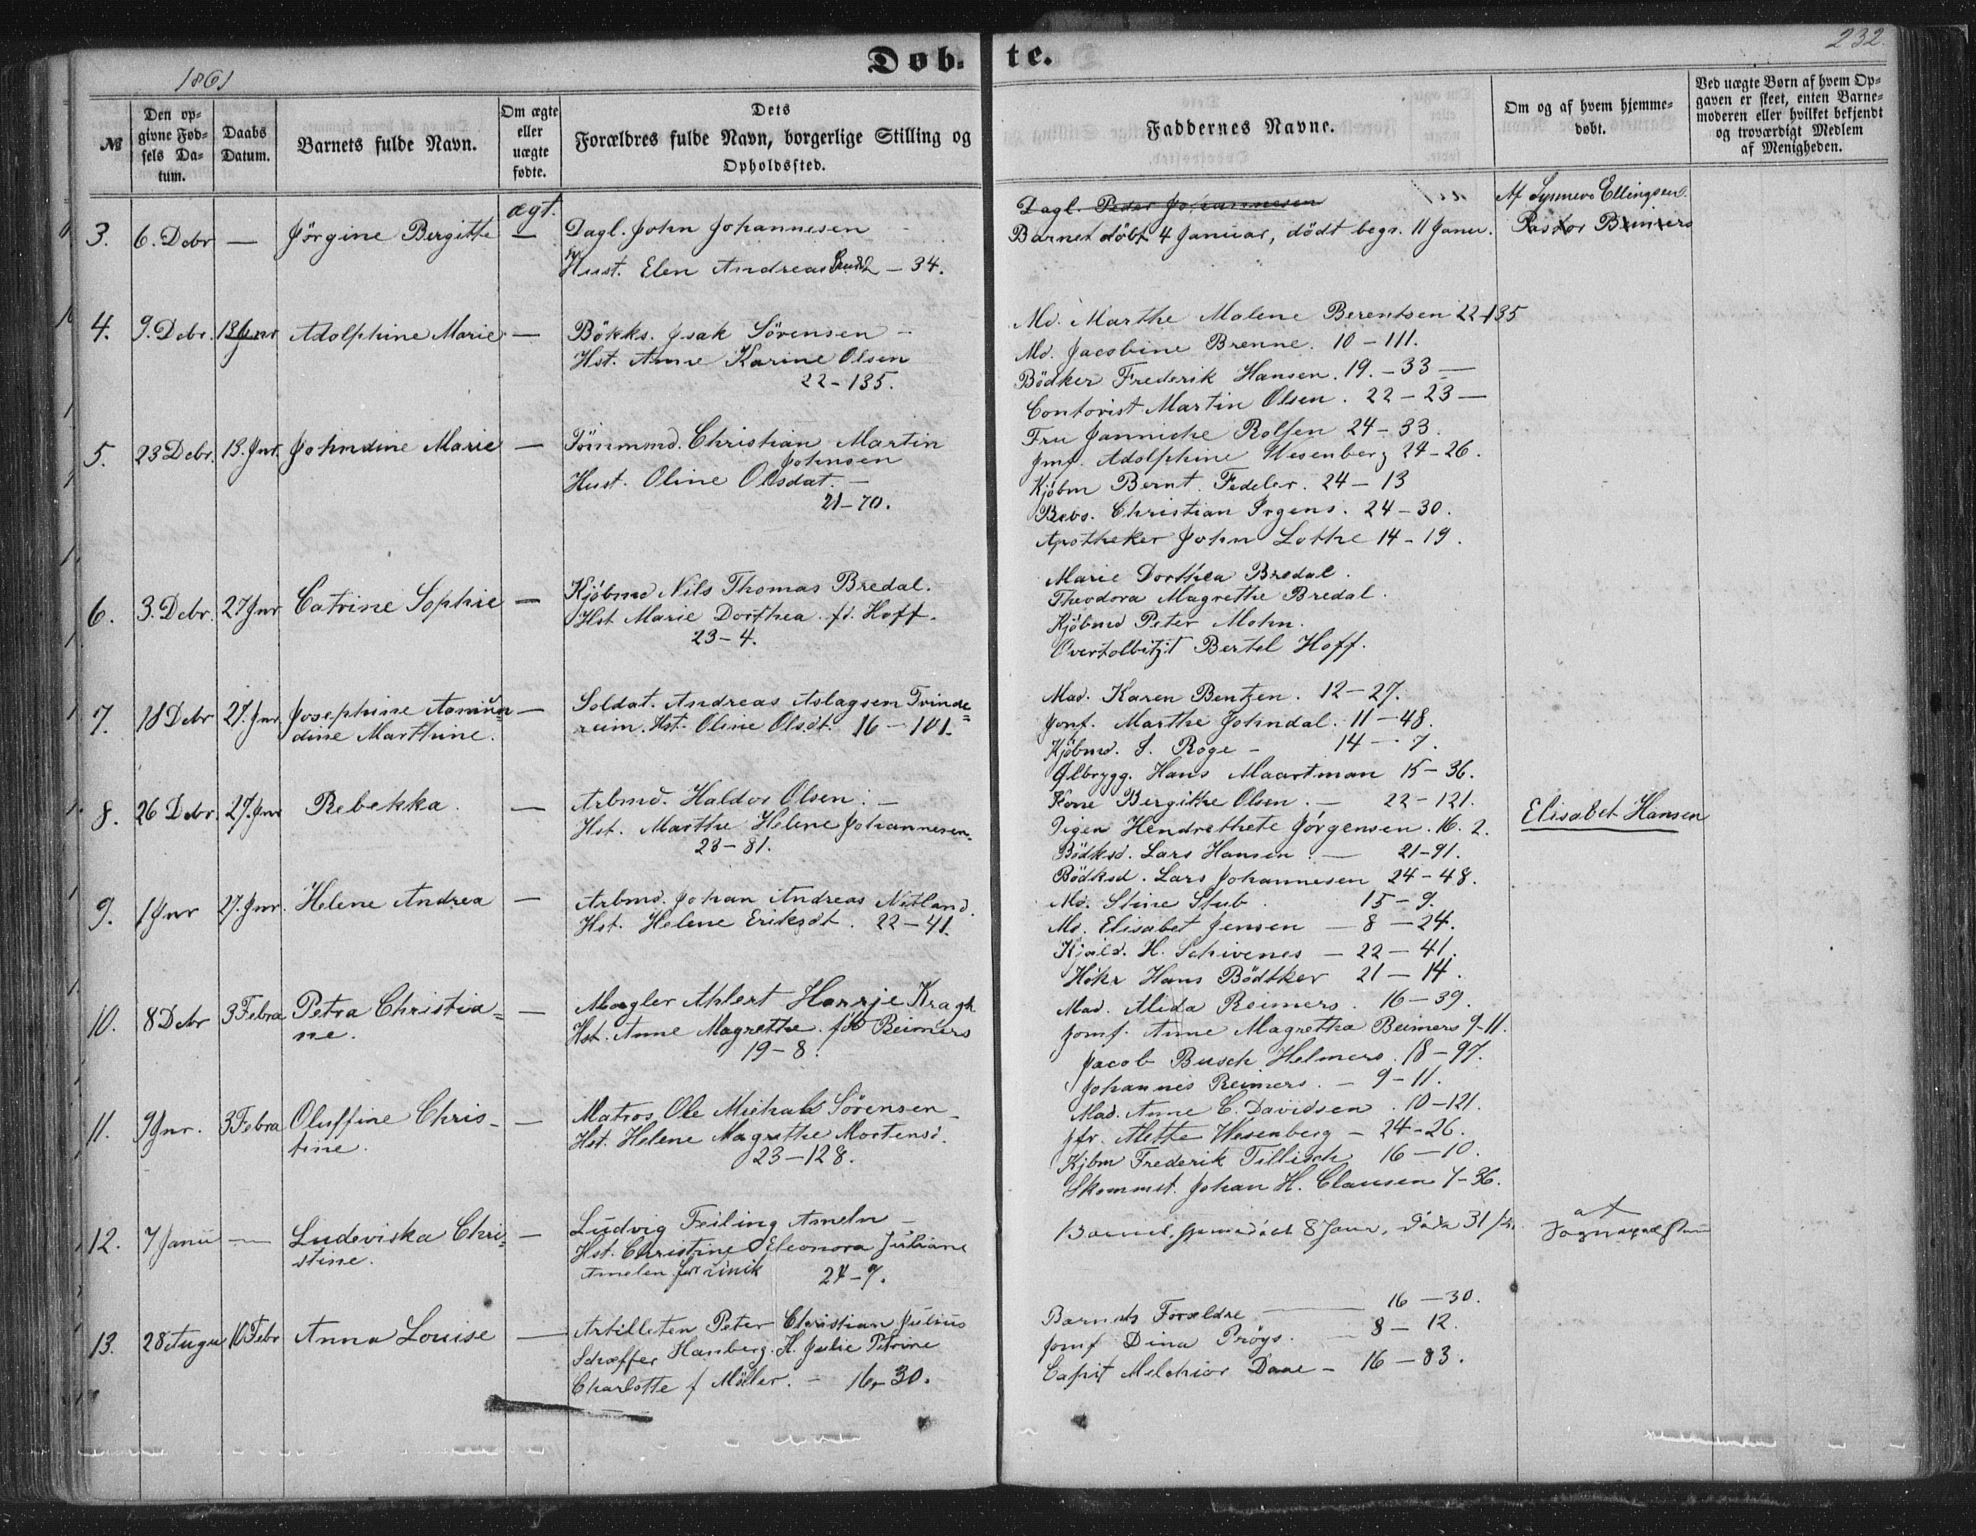 232.
1861
Døb-te.
№
Den opgivne Fødsels Datum.
Daabs Datum.
Barnets fulde Navn.
Om ægte eller uægte fødte.
Dets Forældres fulde Navn, borgerlige Stilling og Opholdssted.
Faddernes Navne.
Om og af hvem hjemmedøbt.
Ved uægte Børn af hvem Opgaven er skeet, enten Barnemoderen eller hvilket bekjendt og troværdigt Medlem af Menigheden.
3. 6. Debr — Jörgine Bergitte ægt. —
Dagl. John Johannesen
Hust. Elen Andreas 2 – 34.
Dagl. Peder Johannesen
Barnet döbt 4 Januar, dödt begr. 11 Janu.
Af Synneve Ellingsen.
Pastor Reimers
4. 9. Debr. 13 Jnr Adolphine Marie —
Bökks. Isak Sörensen –
Hst. Anne Karine Olsen
22 – 135.
Md. Marthe Malene Berentsen 22-135
Md. Jacobine Brenne. 10 – 111.
Bödker Frederik Hansen. 19. – 33 —
Contorist Martin Olsen. 22 – 23 —
5. 23 Debr. 13. Jnr. Johndine Marie —
Tömmmd. Christian Martin
Johnsen
Hust. Oline Olsdat. –
21 – 70.
Fru Jannicke Rolfsen 24 – 33.
Jmf. Adolphine Wesenberg 24 – 26.
Kjöbm Bernt Fedeler. 24 – 13
Bebs. Christian Irgens. 24 – 30.
Apotheker John Lothe 14 – 19.
6. 3. Debr. 27 Jnr Catrine Sophie —
Kjöbmd Nils Thomas Bredal.
Hst Marie Dorthea fd. Hoff.
23 – 4.
Marie Dorthea Bredal.
Theodora Magrethe Bredal.
Kjöbmd Peter Mohn.
Overtolbitjt Bertel Hoff.
7. 18 Debr 27. Jnr Josephine Asmun
dine Marthine. —
Soldat. Andreas Aslagsen Tvinde=
reim. Hst. Oline Olsdt. 16 – 101.
Mad. Karen Bentzen. 12 – 27.
Jomf. Marthe Johndal. 11 – 48.
Kjöbmd. S. Roge – 14 – 7.
Ølbrygg. Hans Maartman 15 – 36.
8. 26 Debr. 27. Jnr Rebekka. —
Arbmd. Haldor Olsen. –
Hst. Marthe Helene Johannesen.
23 – 81.
Kone Bergithe Olsen. – 22 – 121.
Pigen Hendrethete Jörgensen. 16. 2.
Bödksd. Lars Hansen. — 21 – 91.
Bödksd. Lars Johannesen 24 – 48.
Elisabet Hansen
9. 1 Jnr 27. Jnr. Helene Andrea —
Arbmd. Johan Andreas Nitland.
Hst. Helene Eriksdt. 22 – 41.
Md. Stine Stub. 15 – 9.
Md. Elisabet Jensen – 8 – 24.
H. Schivenes – 22 – 41.
Hökr Hans Bödtker 21 – 14.
10. 8 Debr 3 Febra Petra Christia=
ne. —
Mægler Ahlert Harrje Kragh
Hst. Anne Magrethe fd Reimers
19 – 8.
Mad. Alida Reimers. 16 – 39.
Jomf. Anne Magretha Reimers 9 – 11.
Jacob Busch Helmers. 18 – 97.
Johannes Reimers. – 9 – 11.
11. 9 Jnr. 3 Febra Oluffine Chris-
tine. —
Matros Ole Michals Sörensen –
Hst. Helene Magrethe Mortensd.
23 – 128.
Mad. Anne C. Davidsen. 10 – 121.
Jfr. Mette Wesenberg – 24 – 26.
Kjbm Frederik Tillisch 16 – 10.
Skommst. Johan H. Clausen 7 – 36.
12. 7 Janu — Ludoviska Chri=
stine. —
Ludvig Feiling Ameln –
Hst. Christine Eleonora Juliane
Amelen 24 – 7.
Barnet 8 Janr, 31/
af
13. 28 Augu 10 Febr Anna Louise —
Artilleten Peter Christian Julius
Schæffer Hamberg. H. Julie Petrine
Charlotte f Möller. – 16 – 30.
Barnets Forældre — 16 – 30.
Jomf Dina Pröys. — 8 – 12.
Capit Melchior Daae – 16 – 83.